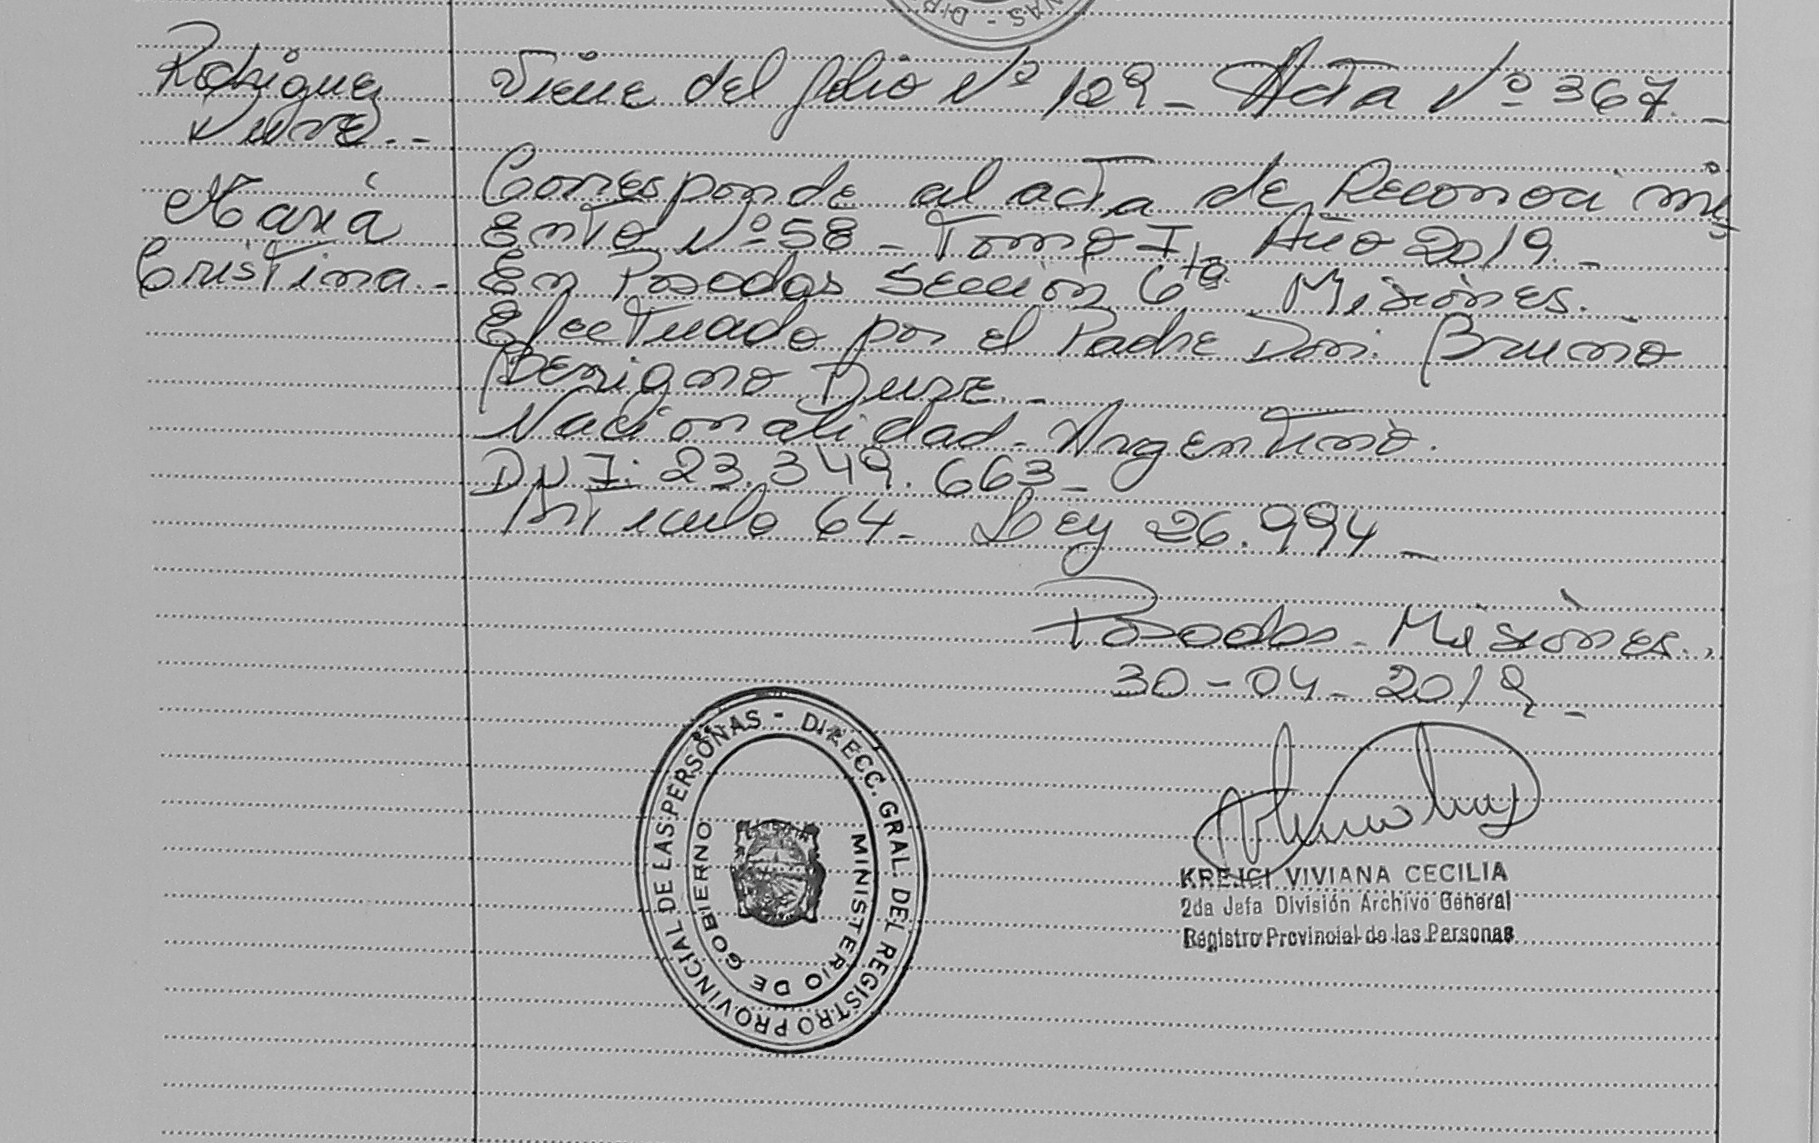 NAS - DIR
Rodriguez
Dure. --
María
Cristina. -
Viene del folio Nº 129 - Acta Nº 367. -
Corresponde al acta de Reconocimi
ento Nº 58 - Tomo I, Año 2019. -
En Posadas Sección 6ta Misiones. -
Efectuado por el Padre Don: Bruno
Benigno Dure. -
Nacionalidad - Argentino.
DNI: 23.349.663 -
Artículo 64 - Ley 26.994 -
Posadas - Misiones.,
30-04-2019 -
DIRECC. GRAL. DEL REGISTRO PROVINCIAL DE LAS PERSONAS -
MINISTERIO DE GOBIERNO
KREJCI VIVIANA CECILIA
2da Jefa División Archivo General
Registro Provincial de las Personas